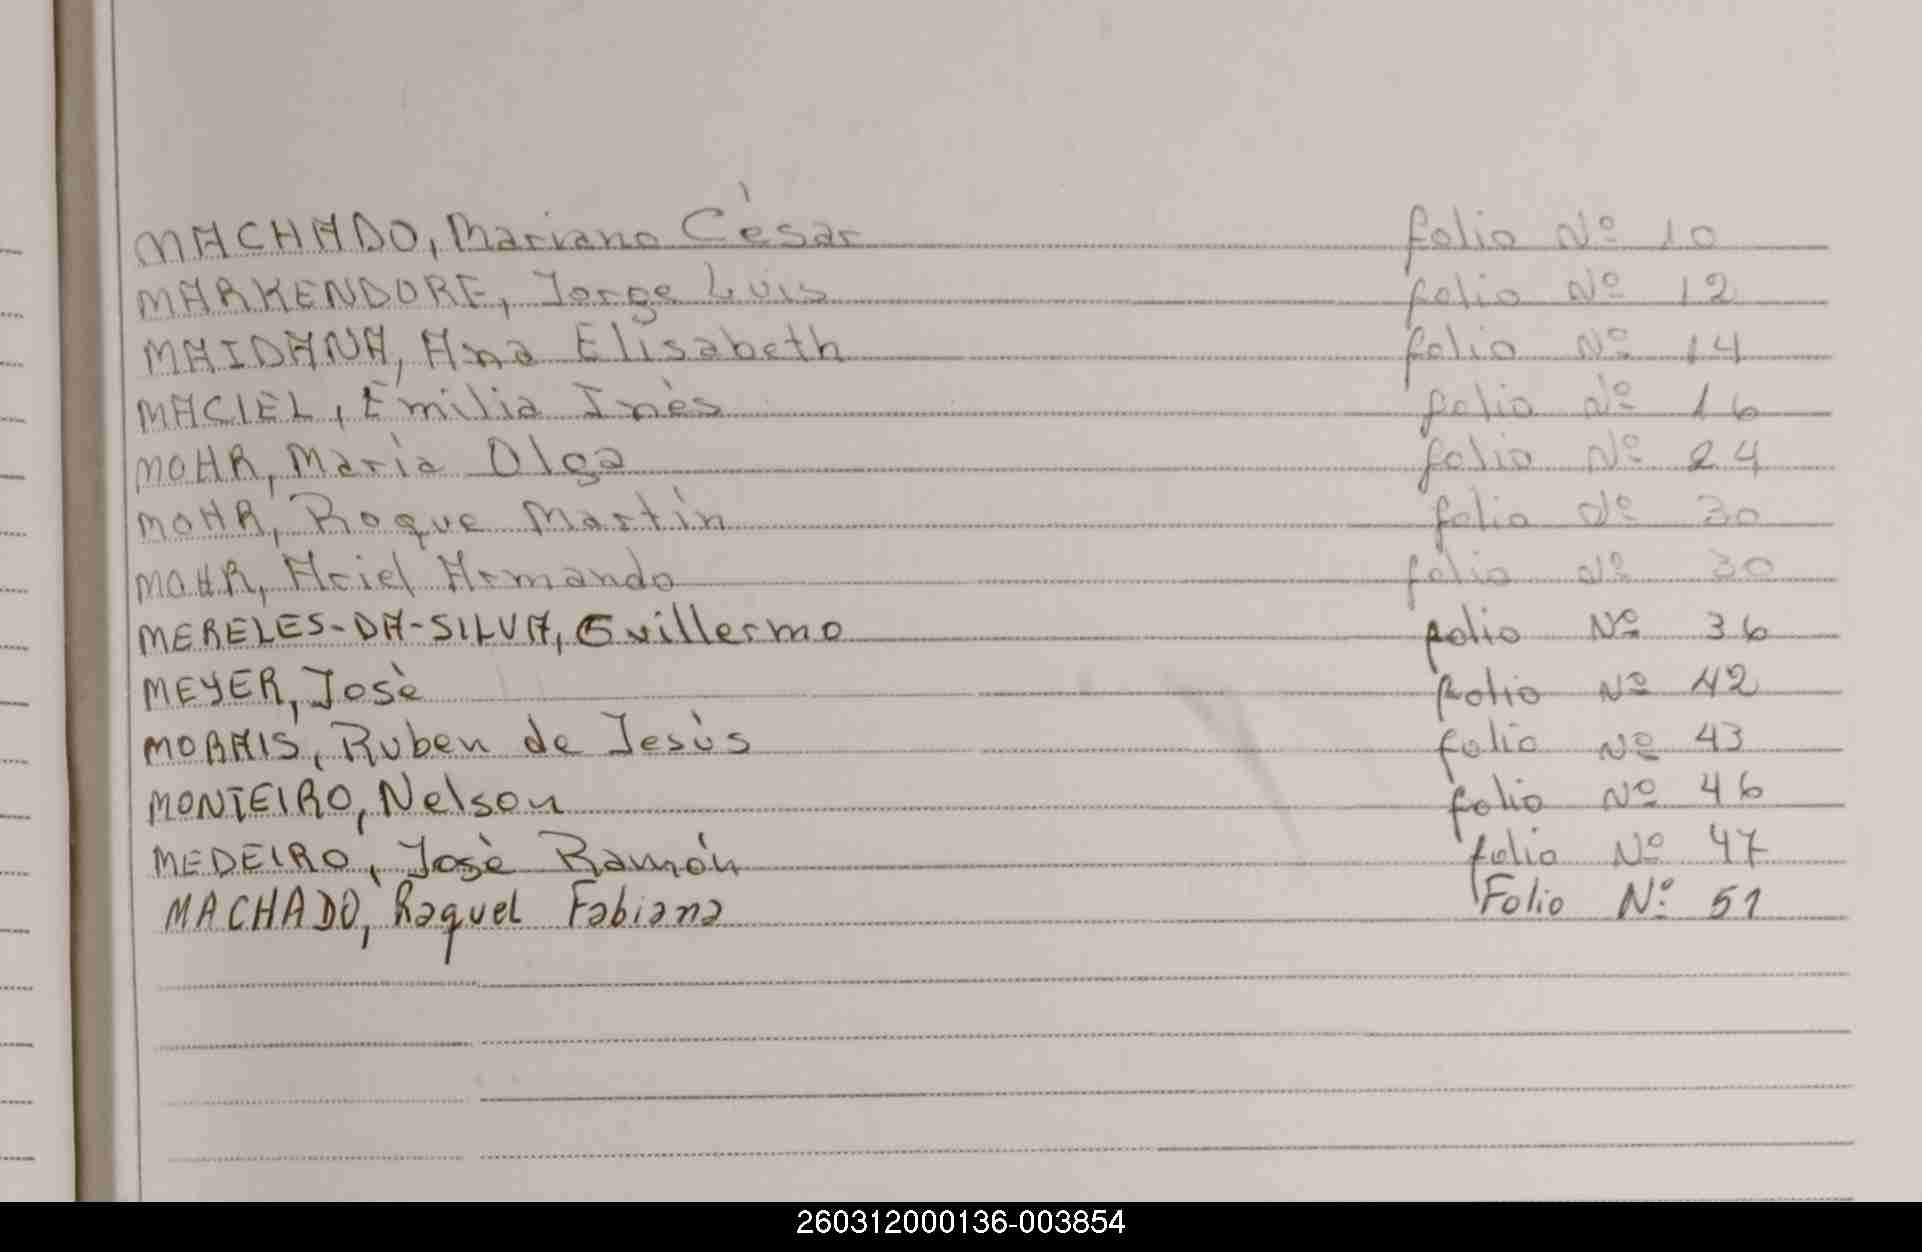 MACHADO, Mariano Cèsar folio Nº 10
MARKENDORF, Jorge Luis folio Nº 12
MAIDANA, Ana Elisabeth folio Nº 14
MACIEL, Emilia Inès folio Nº 16
MOHR, Marìa Olga folio Nº 24
MOHR, Roque Martìn folio Nº 30
MOHR, Ariel Armando folio Nº 30
MERELES-DA-SILVA, Guillermo folio Nº 36
MEYER, Josè folio Nº 42
MORAIS, Ruben de Jesùs folio Nº 43
MONTEIRO, Nelson folio Nº 46
MEDEIRO, Josè Ramón folio Nº 47
MACHADO, Raquel Fabiana Folio Nº 51
260312000136-003854